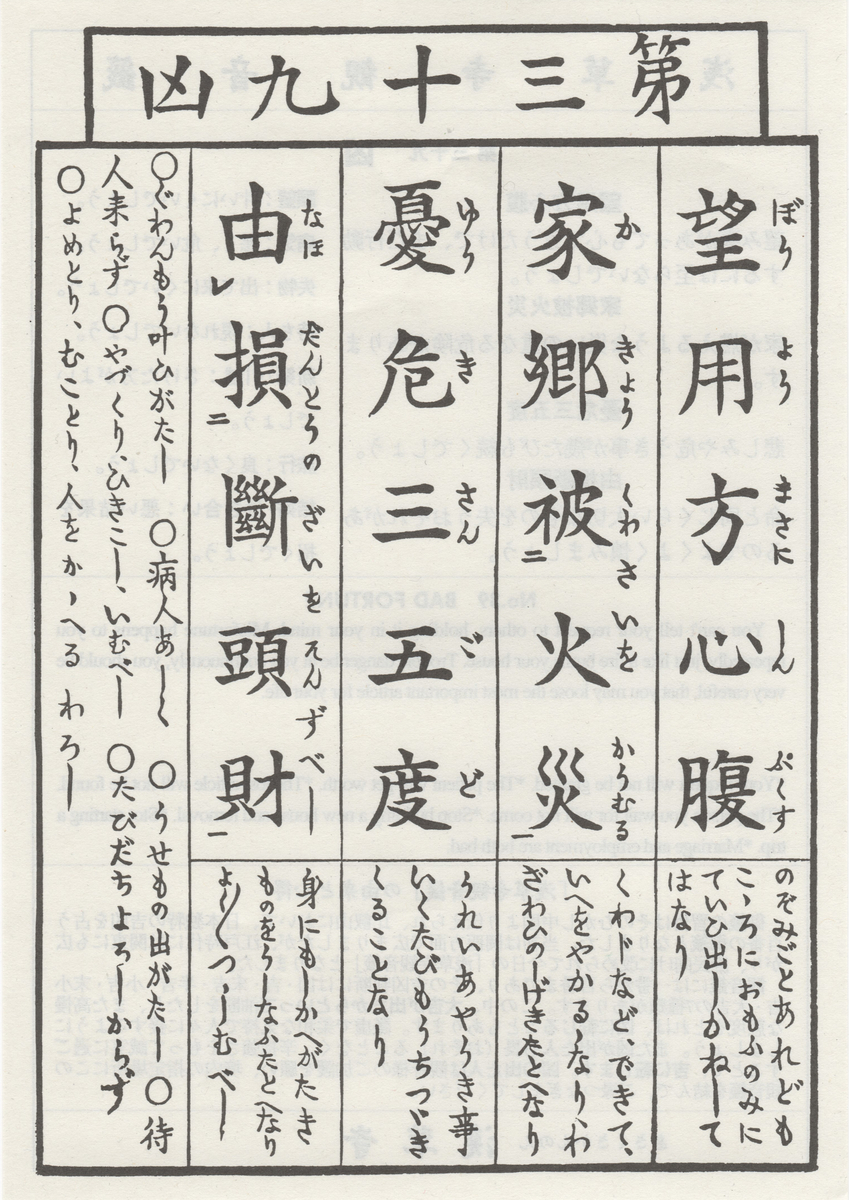 第三十九凶
望用方心腹
ぼう よう まさに しん ぷくす
のぞみごとあれども
こゝろにおもふのみに
ていひ出しかねして
はなり
家郷被二火災一
か きょう くわさいを かうむる
くわじなどできて、
いへをやかるゝたり、わ
ざわひのしげきたへなり
憂危二五度
ゆう き さん ご ど
うれしあやうき事
いくたびもうちつゞき
くるたへなり
由レ損二斷頭財一
なほ だんとうの ざいを そんずべし
身にも かへがたき
ものをうしなふたとへなり
よくつゝしむべし
〇ぐわんもう叶ひがたし 〇病人あしく 〇うせもの出がたし 〇待
人来らず 〇やづくり、ひきこし、いむべし 〇たびだち よろしからず
〇よめとり、むことり、人をかゝへる わろし